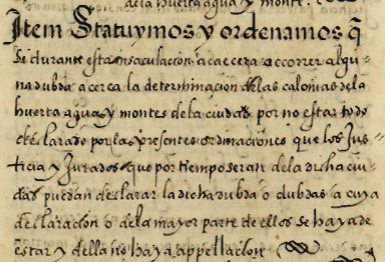 dela huerta agua y monte.
Item Statuymos y ordenamos q̃
si durante esta insaculacion acaecera a correr algu-
na dubda acerca la determinacion delas calonias dela
huerta aguas y montes dela ciudad por no estar todo
declarado por las presentes ordinaciones que los Jus-
ticia y Jurados que por tiempo seran dela dicha ciu-
dad puedan declarar la dicha dubda o dubdas a cuya
declaracion o dela mayor parte de ellos se haya de
estar y della no haya appellacion